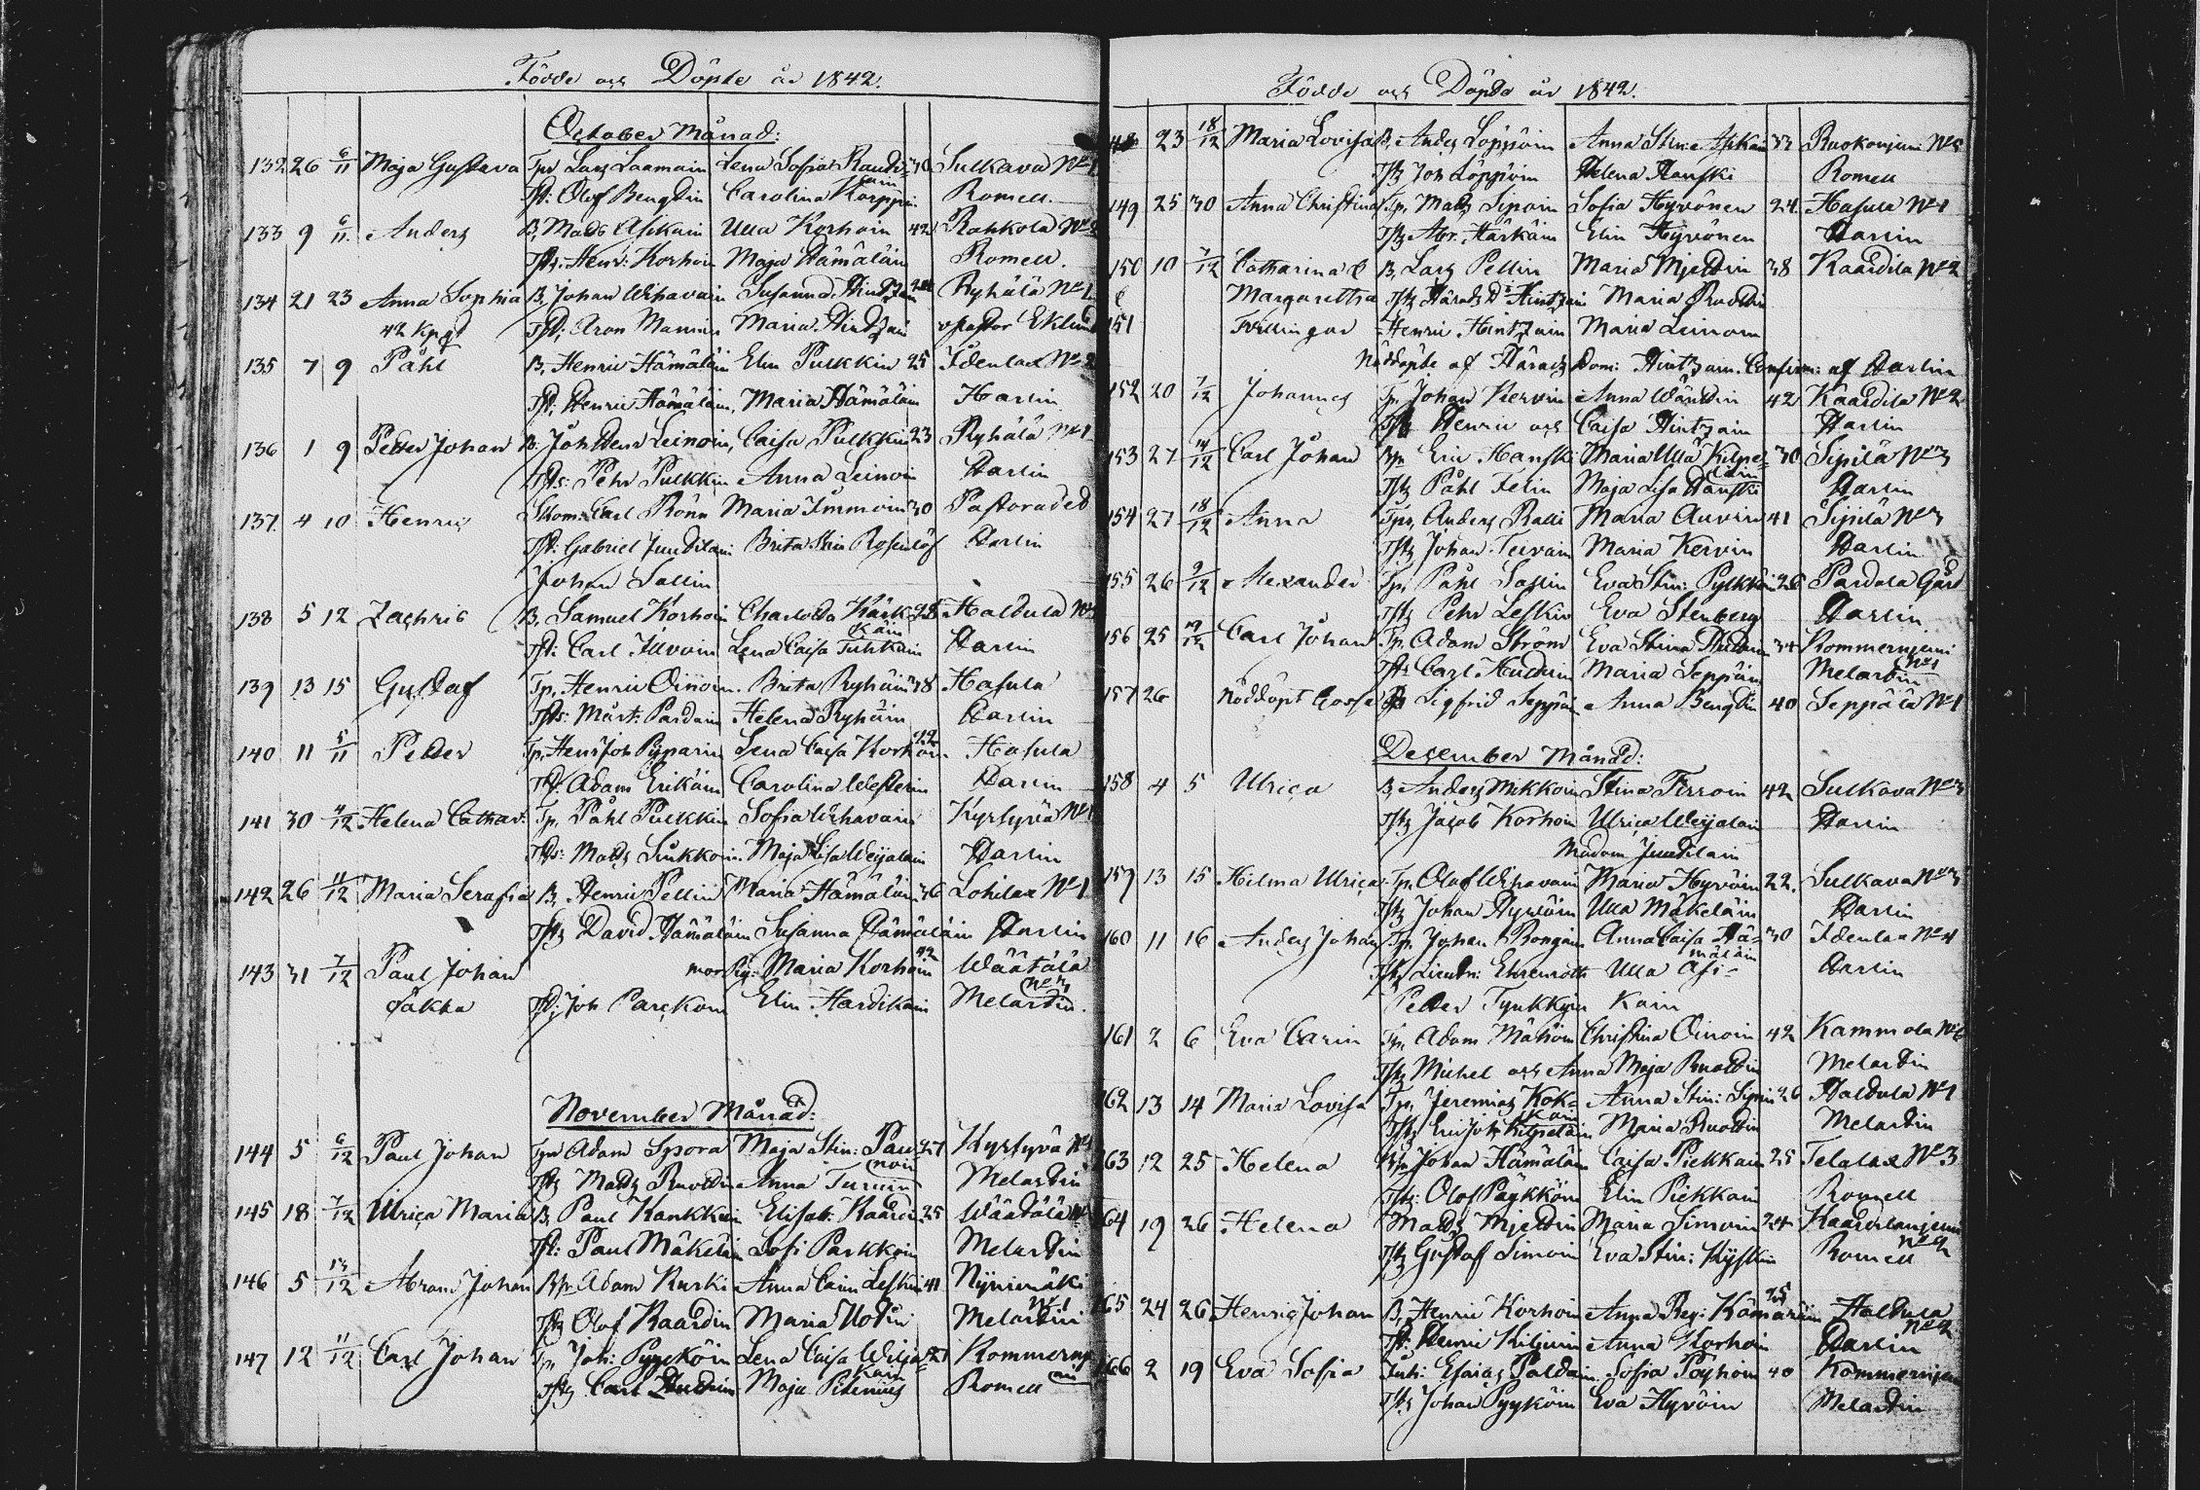 Födde och Döpte år 1842.
October Månad:
132 26 6/11 Maja Gustava Tpr Lars Laamain Lena Sofia Rautiain 30 Sulkava No 1
Tst: Olof Bengtin Carolina Korppi Romell.
133 9 6/11 Anders B, Mats Asikain Ulla Korhoin 42 Rahkola No 2
Tst: Henr: Korhoin Maja Hämäläin Romell.
134 21 23 Anna Sophia B, Johan Wihavain Susanna Ryhälä No 1
Tst; Aron Mannin Maria Eklund
135 7 9 Påhl B, Henric Hämäläin Elin Pulkkin 25 Idenlax No 2
Tst, Henric Hämäläin, Maria Hämäläin Harlin
136 1 9 Petter Johan B, Joh Henr Leinoin, Caisa Pulkkin 23 Ryhälä No 1
Tst: Pehr Pulkkin Anna Leinoin Harlin
137 4 10 Henric Skom: Carl Rönn Maria Immoin 30 Pastoratet
Tst: Gabriel Juutilain Brita Stin Rosenlöf Harlin
Johan Sallin
138 5 12 Zachris B, Samuel Korhoin Charlotta Kärkkäin 28 Haltula
Tst: Carl Lena Caisa Tuhkain Harlin
139 13 15 Gustaf Tp, Henric Oinoin. Brita Ryhäin 38 Hasula
Tst: Mårt: Partain Helena Ryhäin Harlin
140 11 5/11 Petter Tp, Henr Joh Pyparin Lena Caisa Korhoin 22 Hasula
Tst: Adam Erikäin Carolina Westerin Harlin
141 30 4/12 Helena Cathar: Tp, Påhl Pulkkin Sofia Wihavain Kyrsyvä No 1
Tst: Mats Sinkkoin. Maja Lisa Weijalain Harlin
142 26 11/12 Maria Serafia B, Henric Pellin Maria Hämäläin 36 Lohilax No 1
Tst David Hämäläin Susanna Hämäläin Harlin
143 31 7/12 Paul Johan Maria Korhoin 22 Wäätälä No 3
oäkta Tst; Joh Parckoin Elin Hartikain Melartin.
November Månad:
144 5 6/12 Paul Johan Tpr Adam Spora Maja Stin: Paunoin 27 Kyrsyvä
Tst Mats Ruottin Anna Turuin Melartin
145 18 7/12 Ulrica Maria B, Paul Kankkuin Elisab: Kaartin 25 Wäätälä
Tst: Paul Mäkeläin Sofi Parkkoin Melartin
146 5 13/12 Abram Johan Adam Kurki Anna Carin Leskin 41 Nyninmäki
Tst Olof Kaartin Maria Melartin
147 12 11/12 Carl Johan Tp, Joh: Pyyköin Lena Caisa Wiljakain 21 Kommerniemi
Tst Carl Hudtin Maja Petenius Romell
Födde och Döpte år 1842.
148 23 18/12 Maria Lovisa B, Anders Löppöin Anna Stina Asikain 33 Ruokoniemi
Tst Joh Löppöin Helena Hanski Romell
149 25 30 Anna Christina Tp, Mats Siparin Sofia Hyvönen 24. Hasula No 1
Tst Abr. Härkäin Elin Hyvönen Harlin
150 10 7/12 Catharina & B, Lars Pellin Maria Miettin 38 Kaartila No 2
& Margaretha Tst Härads D: Hintzain Maria Ruottin
151 Tvillingar Henric Hintzain Maria Leinoin
Nöddöpte af Härads Dom: Hintzain. Confirm: af Harlin
152 20 7/12 Johannes Tp, Johan Kiervin Anna Wänttin 42 Kaartila No 2
Tst Henric och Caisa Hintzain Harlin
153 27 14/12 Carl Johan Eric Hanski Maria Ulla Kilpeläin 30 Sipilä No 3
Tst Påhl Felin Maja Lisa Hanski Harlin
154 27 18/12 Anna Tpr, Anders Ralli Maria Auvin 41 Sipilä No 3
Tst Johan Teivain Maria Kervin Harlin
155 26 9/12 Alexander Tp, Påhl Sallin Eva Stin: Pylkkäin 26 Partala Gård
Tst Pehr Leskin Eva Stenberg Harlin
156 25 Carl Johan Tp, Adam Ström Eva Stina Hudtin 34 Kommerniemi No 1
Tst Carl Hudtin Maria Seppäin Melartin
157 26 Nöddöpt Gosse Sigfrid Seppäin Anna Bengtin 40 Seppälä No 1
December Månad:
158 4 5 Ulrica B, Anders Mikkoin Stina Tirroin 42 Sulkava No 3
Tst Jacob Korhoin Ulrica Weijalain Harlin
Madam Juutilain
159 13 15 Hilma Ulrica Tp, Olof Wihavain Maria Hyvöin 22. Sulkava No 3
Tst Johan Hyvöin Ulla Mäkeläin Harlin
160 11 16 Anders Johan Tp, Johan Rongain Anna Caisa Hämäläin 30 Idenlax No 4
Tst Lieutn: Ehrenroth Ulla Asikain Harlin
Petter Tynkkyin
161 2 6 Eva Carin Tp, Adam Mähöin Christina Oinoin 42 Kammola No 6
Tst Michel och Anna Maja Ruottin Melartin
162 13 14 Maria Lovisa Tp, Jeremias Kokkoin Anna Stin: Sipin 26 Haltula No 1
Tst Eric Joh Kilpeläin Maria Ruottin Melartin
163 12 25 Helena Johan Hämäläin Caisa Piekkain 25 Telalax No 3
Tst: Olof Päykköin Elin Piekkain Romell
164 19 26 Helena Mats Miettin Maria Simoin 24 Kaartilaniemi No 2
Tst Gustaf Simoin Eva Stin: Kystin Romell
165 24 26 Henric Johan B, Henric Korhoin Anna Reg: Kämäräin 25 Haltula No 2
Tst: Henric Kiljunin Anna Korhoin Harlin
166 2 19 Eva Sofia Inh: Esaias Paldain. Sofia Pöyhöin 40 Kommerniemi
Tst Johan Pyyköin Eva Hyvöin Melartin